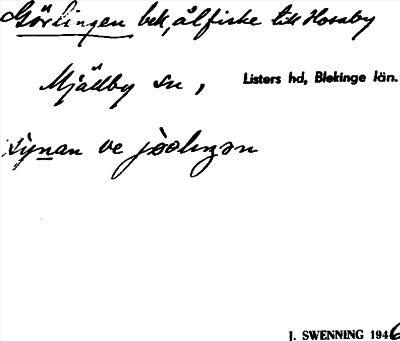 Görlingen bek, ålfiske till Hosaby
Mjällby sn, Listers hd, Blekinge län.
ve
J. SWENNING 1946